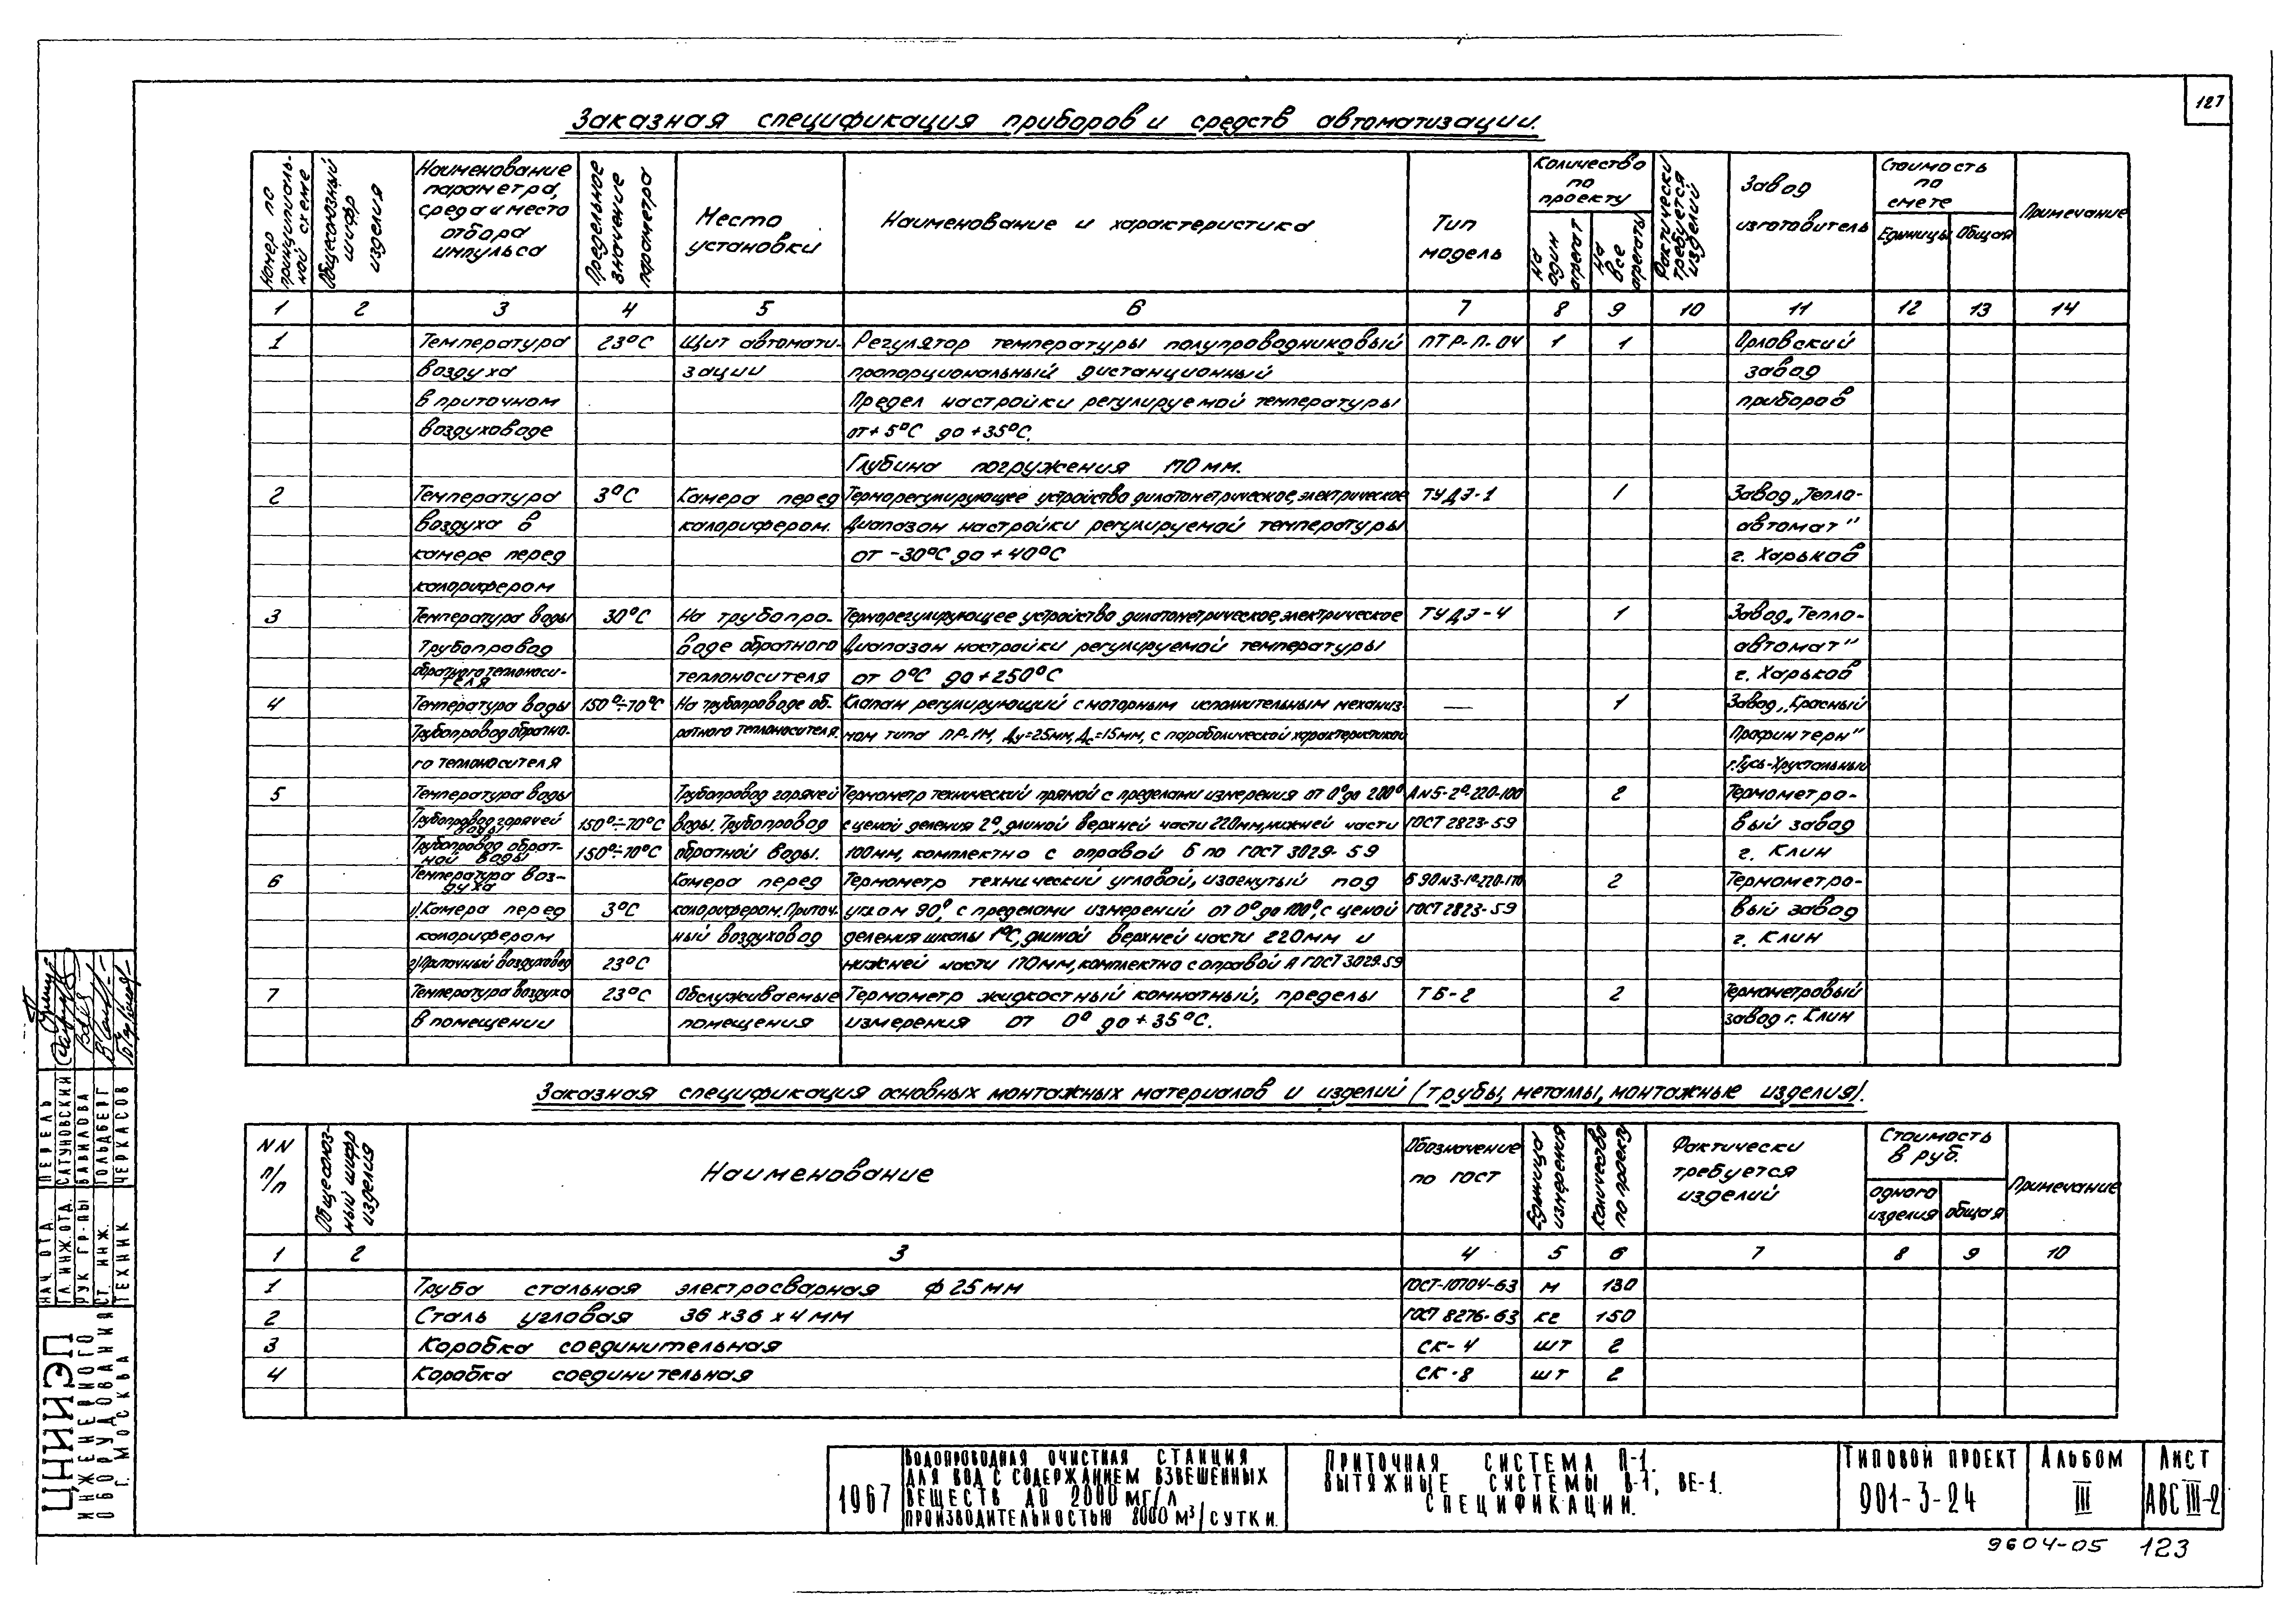 127
Заказная спецификация приборов и средств автоматизации.
Номер по принципиаль-ной схеме
Общесоюзный шифр изделия
Наименование параметра, среда и место отбора импульса
Предельное значение параметра
Место установки
Наименование и характеристика
Тип модель
Количество по проекту
На один агрегат
На все агрегаты
Фактически требуется изделий
Завод изготовитель
Стоимость по смете
Единицы
Общая
Примечание
1 2 3 4 5 6 7 8 9 10 11 12 13 14
1 Температура 23°С Щит автомати- Регулятор температуры полупроводниковый ПТР-П-04 1 1 Орловский
воздуха зации пропорциональный дистанционный завод
в приточном Предел настройки регулируемой температуры приборов
воздуховоде от +5°С до +35°С.
Глубина погружения 170 мм.
2 Температура 3°С Камера перед Терморегулирующее устройство дилатометрическое, электрическое ТУДЭ-1 1 Завод „Тепло-
воздуха в калорифером. Диапазон настройки регулируемой температуры автомат"
камере перед от -30°С до +40°С г. Харьков
калорифером
3 Температура воды 30°С На трубопро- Терморегулирующее устройство дилатометрическое, электрическое ТУДЭ-4 1 Завод „Тепло-
Трубопровод воде обратного Диапазон настройки регулируемой температуры автомат"
обратного теплоноси-теля теплоносителя от 0°С до +250°С г. Харьков
4 Температура воды 150°÷70°С На трубопроводе об- Клапан регулирующий с моторным исполнительным механиз- — 1 Завод „Красный
Трубопровод обратно- ратного теплоносителя. мом типа ПР-1М, Ду=25мм, Дс=15мм, с параболической характеристикой Профинтерн"
го теплоносителя г. Гусь-Хрустальный
5 Температура воды Трубопровод горячей Термометр технический прямой с пределами измерения от 0° до 200° А№5-2°-220-100 2 Термометро-
Трубопровод горячей воды 150°÷70°С воды. Трубопровод с ценой деления 2°, длиной верхней части 220мм, нижней части ГОСТ 2823-59 вый завод
Трубопровод обрат-ной воды 150°÷70°С обратной воды. 100мм, комплектно с оправой Б по ГОСТ 3029-59 г. Клин
6 Температура воз-духа Камера перед Термометр технический угловой, изогнутый под Б90№3-1°-220-170 2 Термометро-
1). Камера перед 3°С калорифером. Приточ- углом 90°, с пределами измерений от 0° до 100°, с ценой ГОСТ 2823-59 вый завод
калорифером ный воздуховод деления шкалы 1°С, длиной верхней части 220мм и г. Клин
2) Приточный воздуховод 23°С нижней части 170мм, комплектно с оправой А ГОСТ 3029-59
7 Температура воздуха 23°С Обслуживаемые Термометр жидкостный комнатный, пределы ТБ-2 2 Термометровый
в помещении помещения измерения от 0° до +35°С. завод г. Клин
Заказная спецификация основных монтажных материалов и изделий (трубы, металлы, монтажные изделия).
NN п/п
Общесоюз-ный шифр изделия
Наименование
Обозначение по ГОСТ
Единица измерения
Количество по проекту
Фактически требуется изделий
Стоимость в руб.
одного изделия
общая
Примечание
1 2 3 4 5 6 7 8 9 10
1 Труба стальная электросварная ф 25мм ГОСТ-10704-63 м 130
2 Сталь угловая 36 х 36 х 4 мм ГОСТ 8276-63 кг 150
3 Коробка соединительная СК-4 шт 2
4 Коробка соединительная СК-8 шт 2
НАЧ. ОТД. ПЕВЕЛЬ
ГЛ. ИНЖ. ОТД. САТУНОВСКИЙ
РУК ГР-ПЫ ВАВИЛОВА
СТ. ИНЖ. ГОЛЬДБЕРГ
ТЕХНИК ЧЕРКАСОВ
ЦНИИЭП
ИНЖЕНЕРНОГО
ОБОРУДОВАНИЯ
Г. МОСКВА
1967
ВОДОПРОВОДНАЯ ОЧИСТНАЯ СТАНЦИЯ
ДЛЯ ВОД С СОДЕРЖАНИЕМ ВЗВЕШЕННЫХ
ВЕЩЕСТВ ДО 2000 МГ/Л
ПРОИЗВОДИТЕЛЬНОСТЬЮ 8000 М³/СУТКИ.
ПРИТОЧНАЯ СИСТЕМА П-1.
ВЫТЯЖНЫЕ СИСТЕМЫ В-1, ВЕ-1.
СПЕЦИФИКАЦИИ.
ТИПОВОЙ ПРОЕКТ
901-3-24
АЛЬБОМ
III
ЛИСТ
АВС III-2
9604-05 123